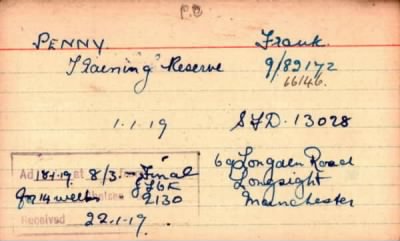 P.O
PENNY. Frank.
Training Reserve 9/89172
66146.
1.1.19 SFD. 13028
6a Longden Road
Longsight
Manchester
18.1.19. 8/3 - Final
for 14 weeks 2130
Received 22.1.19.